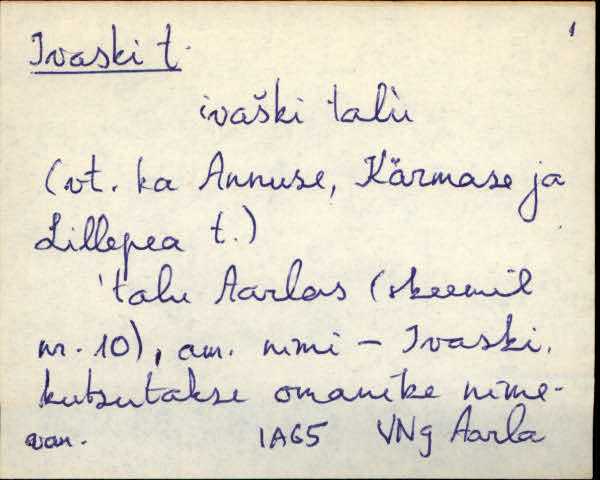 1
Ivaski t.
ivaški talù
(vt. ka Annuse, Kärmase ja
Lillepea t.)
talu Aarlas (skeemil
nr. 10), am. nimi – Ivaski.
kutsutakse omanike nime-
van. 1965 VNg Aarla